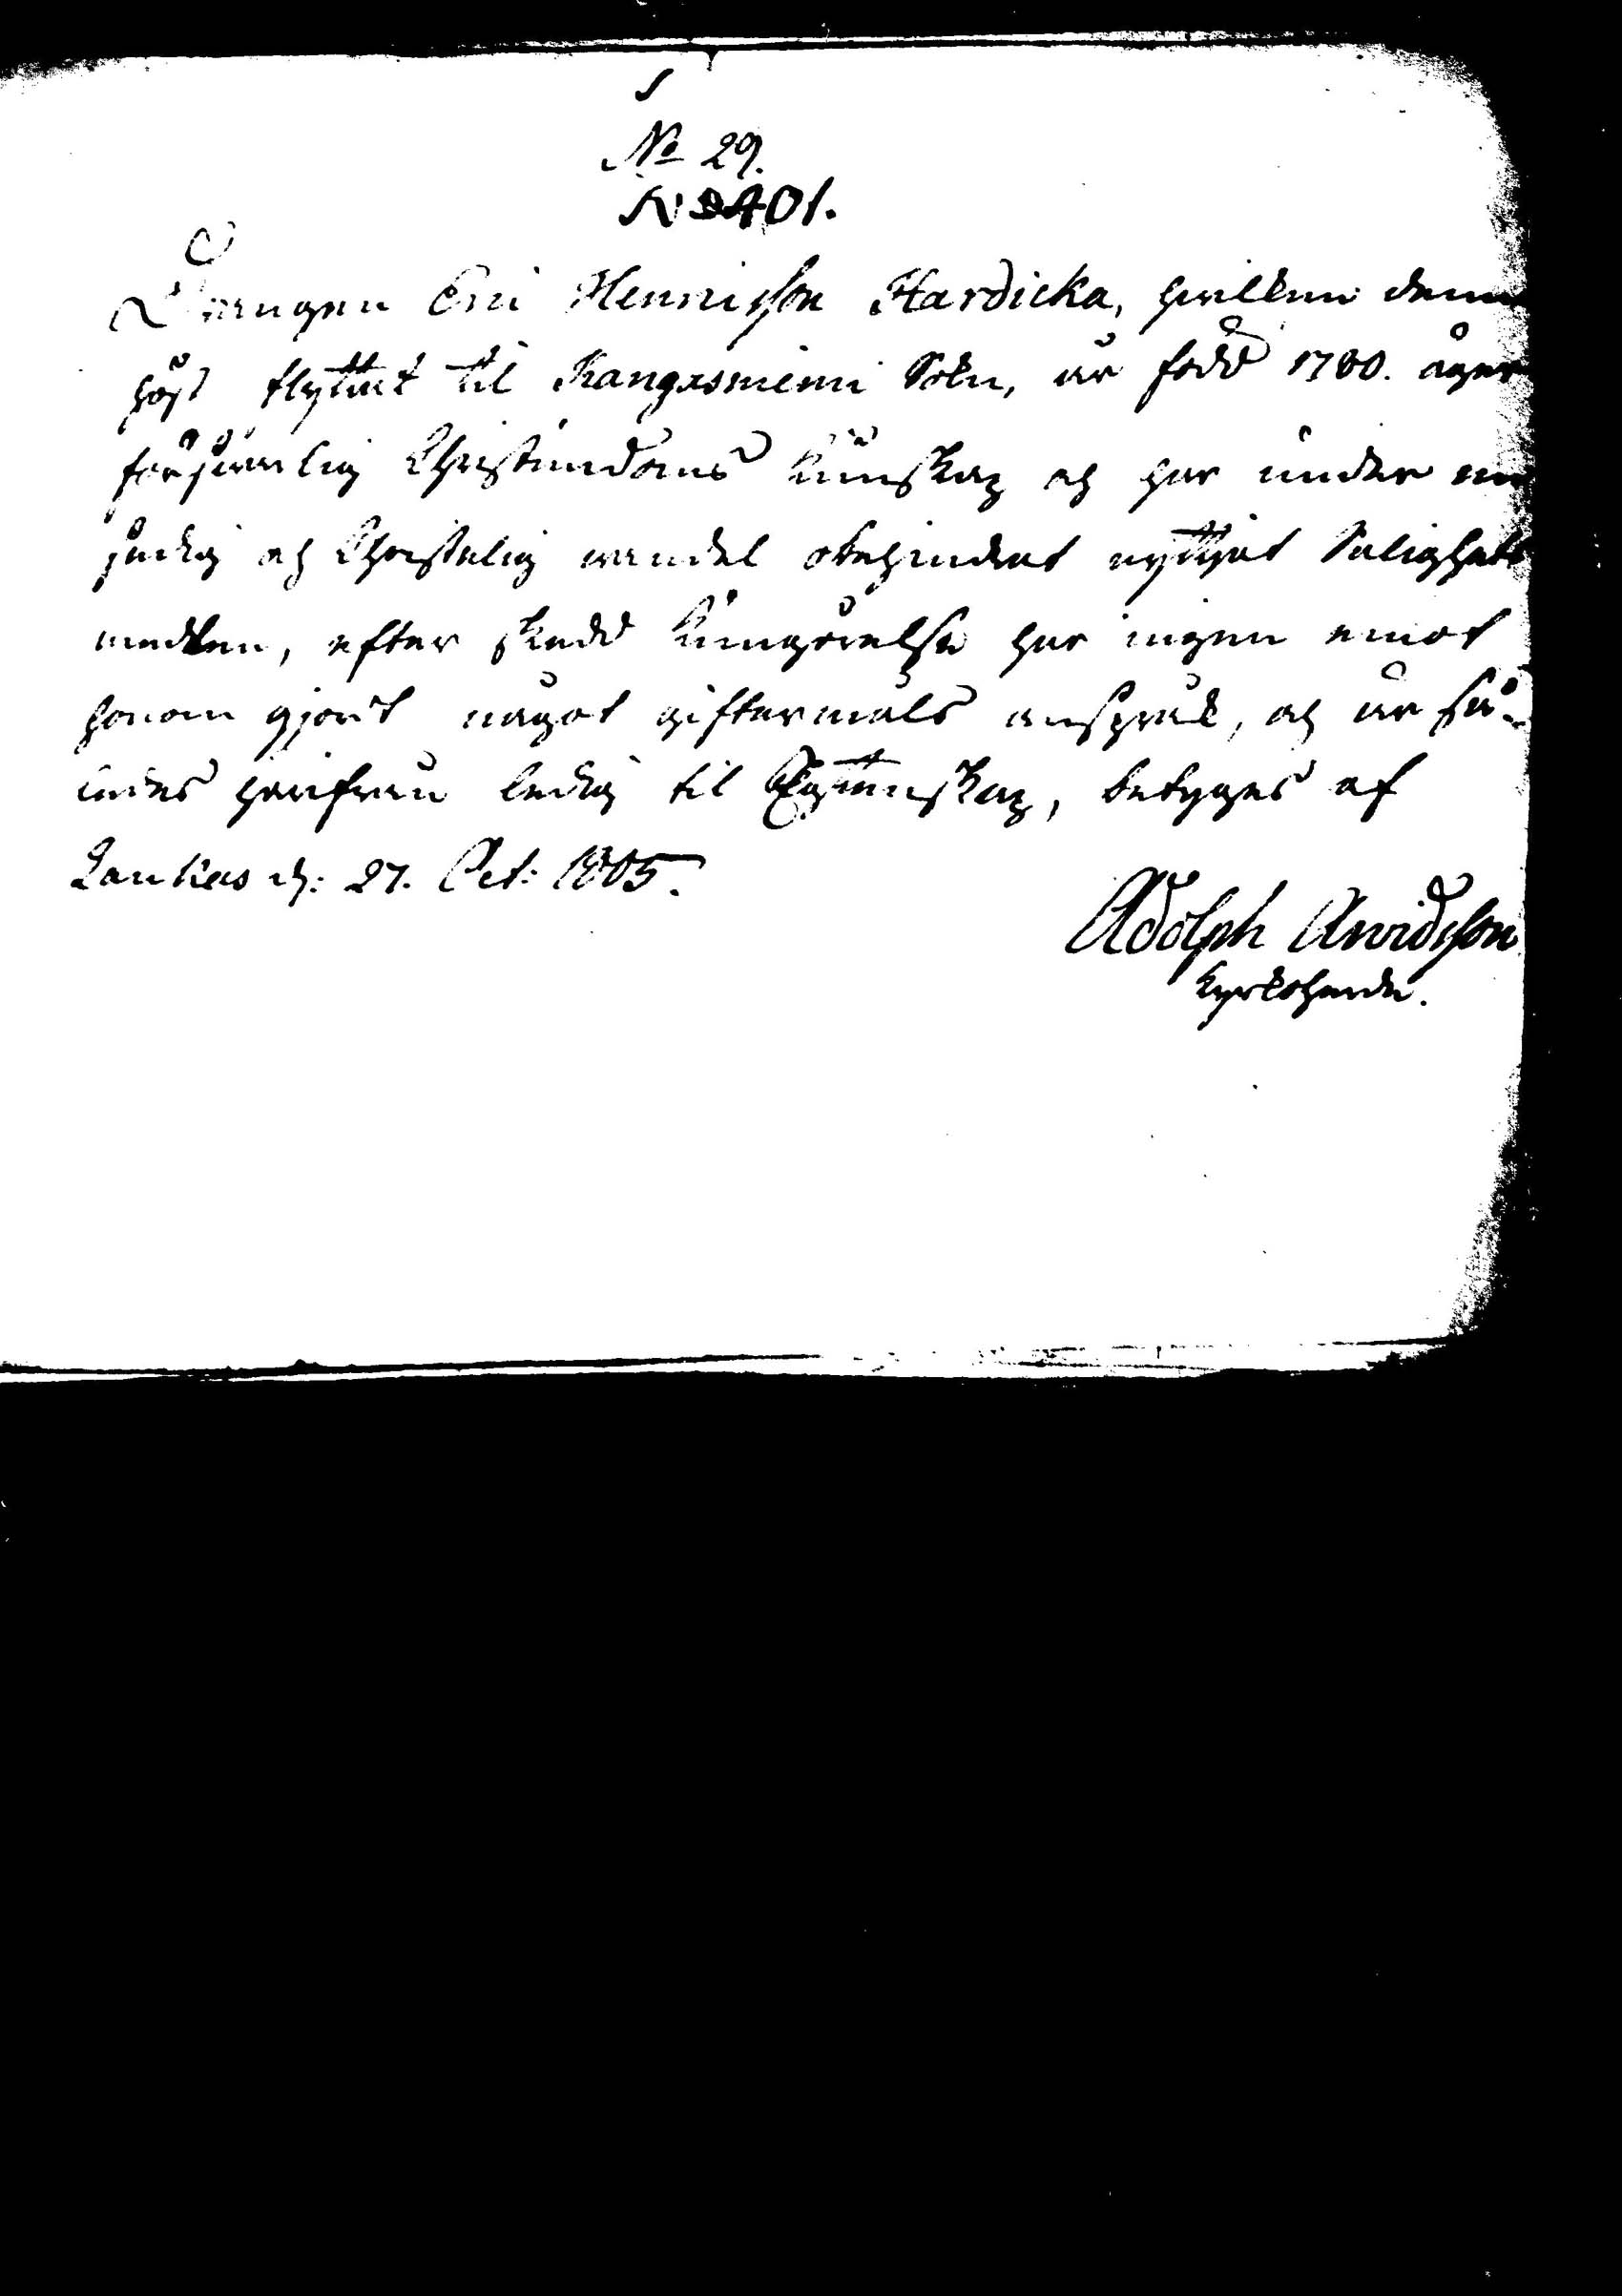 No 29.
401.
Drengen Eric Henricsson Hardicka, hwilken denna
höst flyttat til Kangasniemi Sokn, är född 1780. äger
förswarlig Christendoms kunskap och har under en
sedig och Christelig wandel obehindrat nyttjat Salighets
medlen, efter skedd kungörelse har ingen emot
honom gjort något giftermåls anspråk, och är så-
ledes härifrån ledig til Egtenskap, betyges af
Laukas d: 27. Oct: 1805.
Adolph Arvidsson
Kyrkoherde.